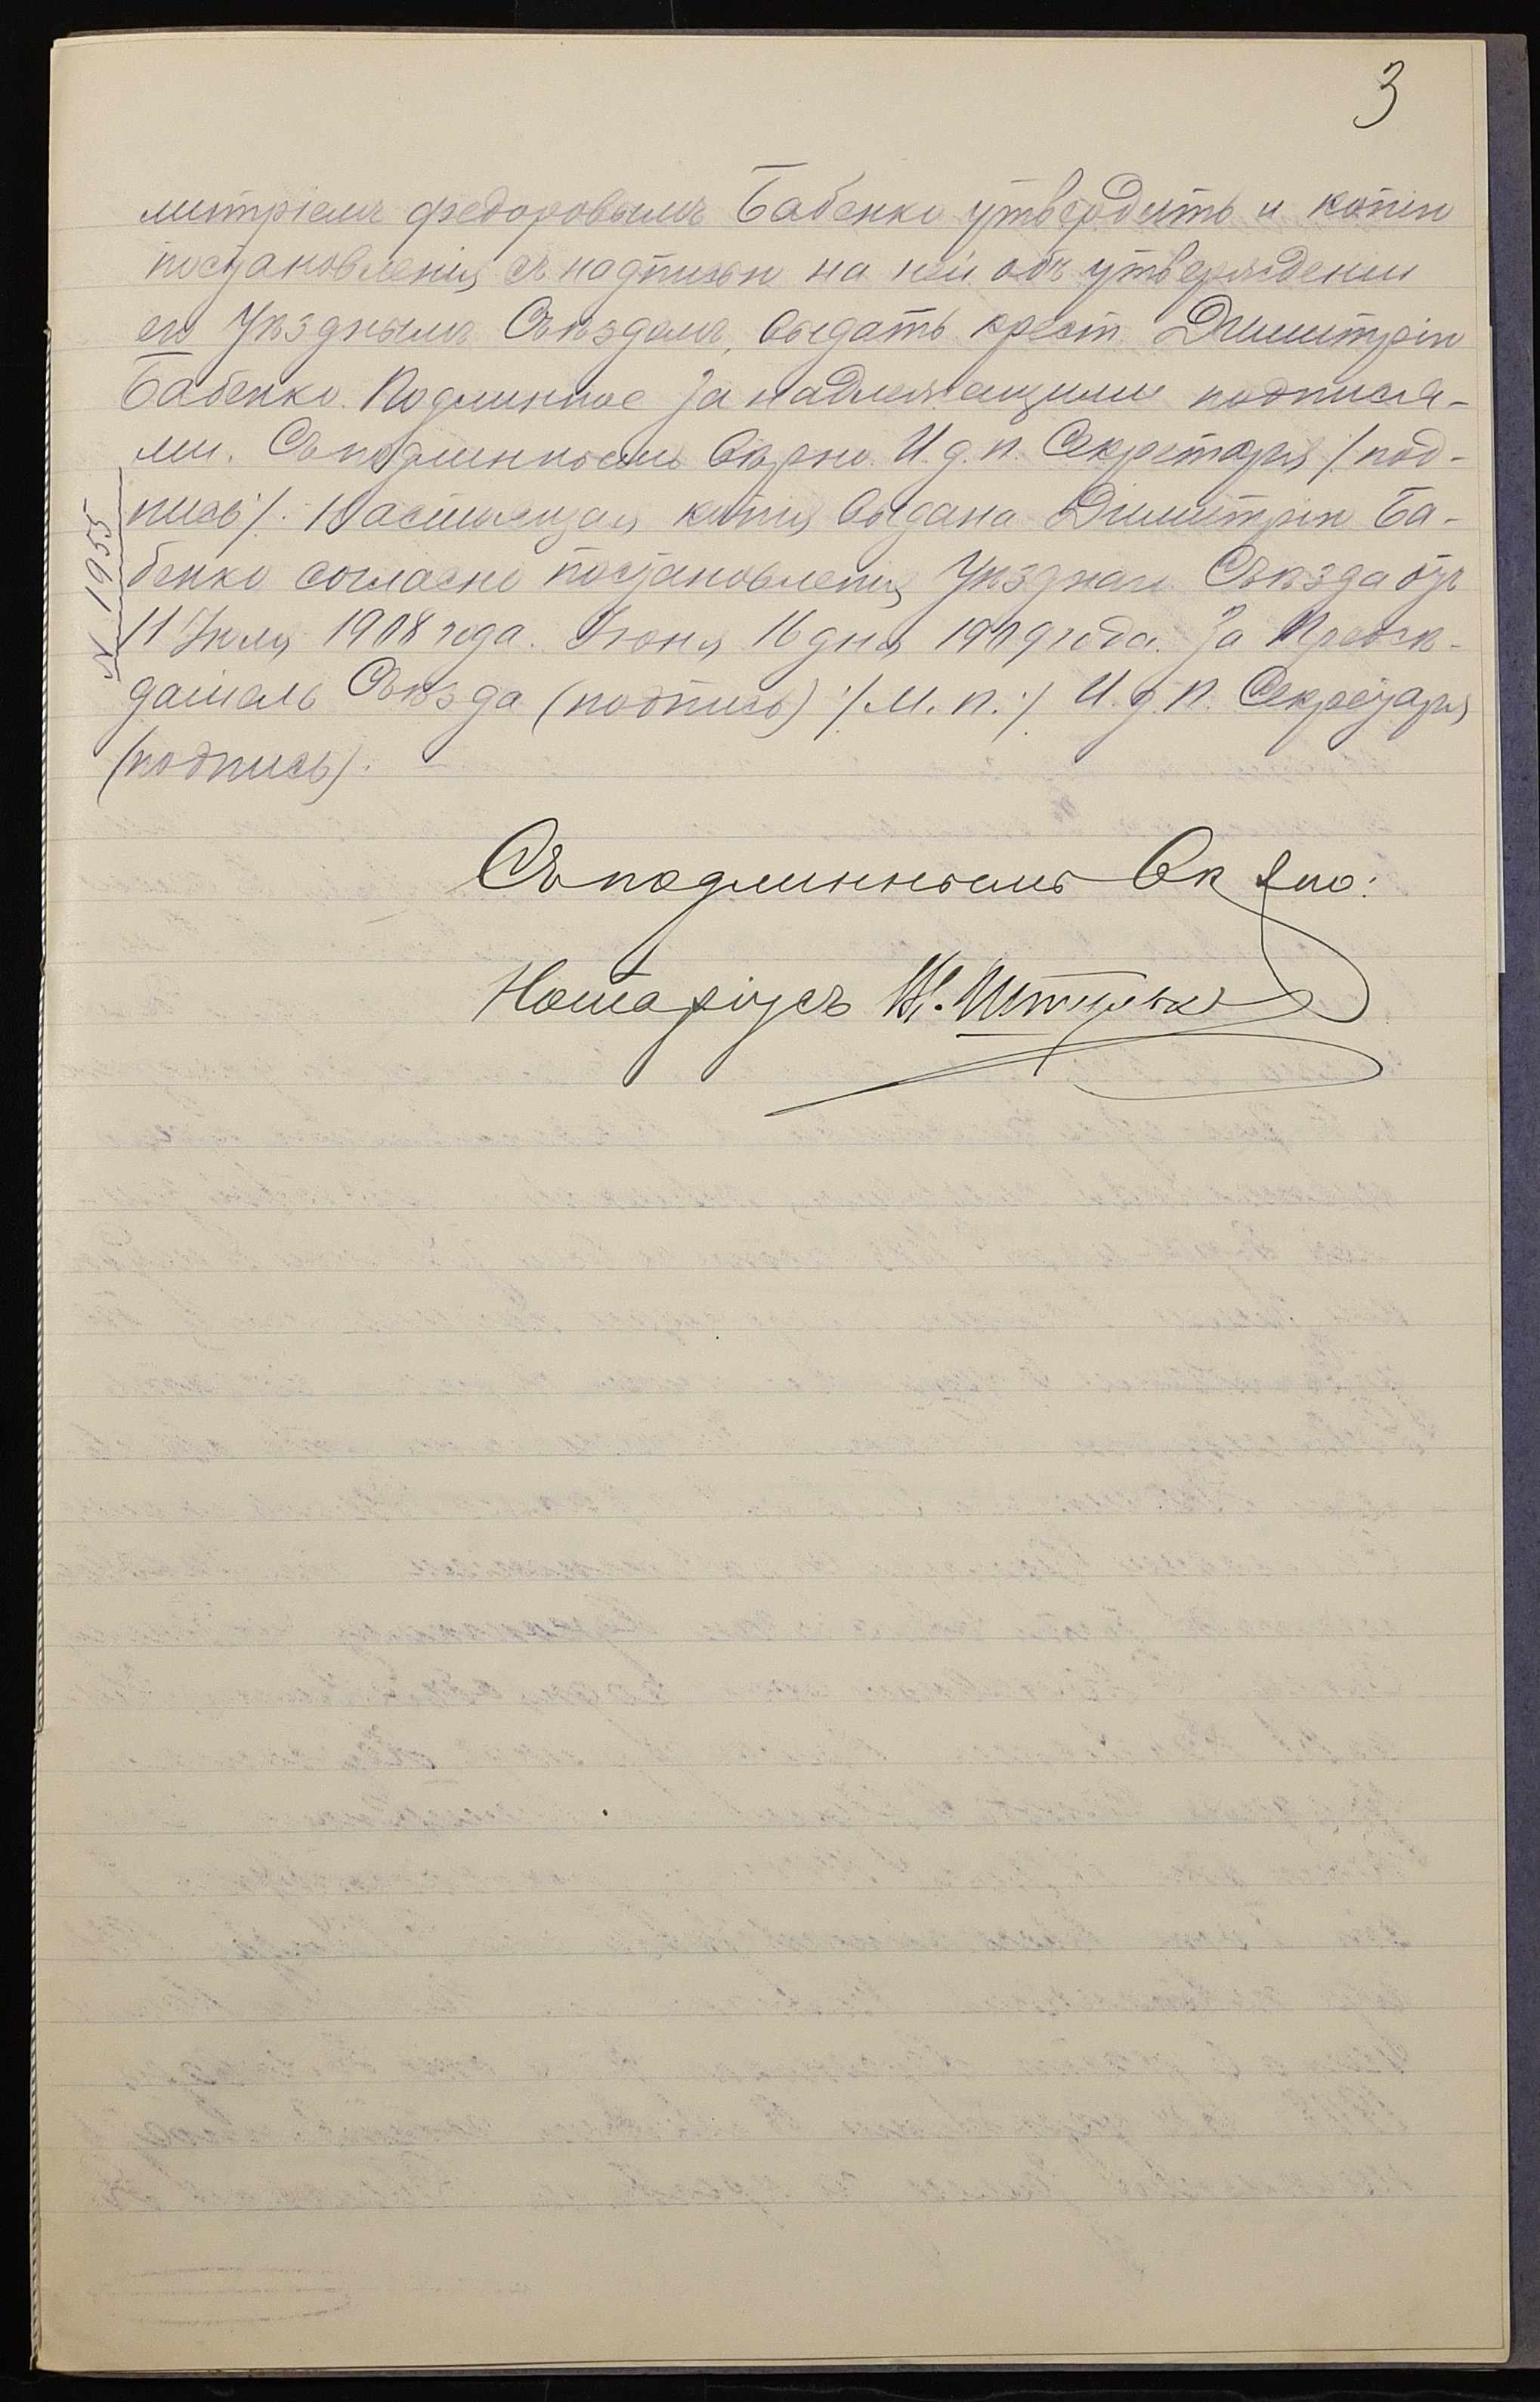 3
митріемъ Федоровымъ Бабенко утвердить и копію
постановленія съ надписью на ней объ утвержденіи
его Уѣзднымъ Съѣздомъ, выдать крест. Димитрію
Бабенко. Подлинное за надлежащими подпися-
ми. Съ подлиннымъ вѣрно. И. д. п. Секретаря /под-
пись/. Настоящая копія выдана Димитрію Ба-
бенко согласно постановленія Уѣзднаго Съѣзда отъ
11 Іюля 1908 года. Іюня 16 дня 1909 года. За Предсѣ-
датель Съѣзда (подпись) /М. П./ И. д. п. Секретаря
(подпись).
№ 1955
Съ подлиннымъ вѣрно:
Нотаріусъ